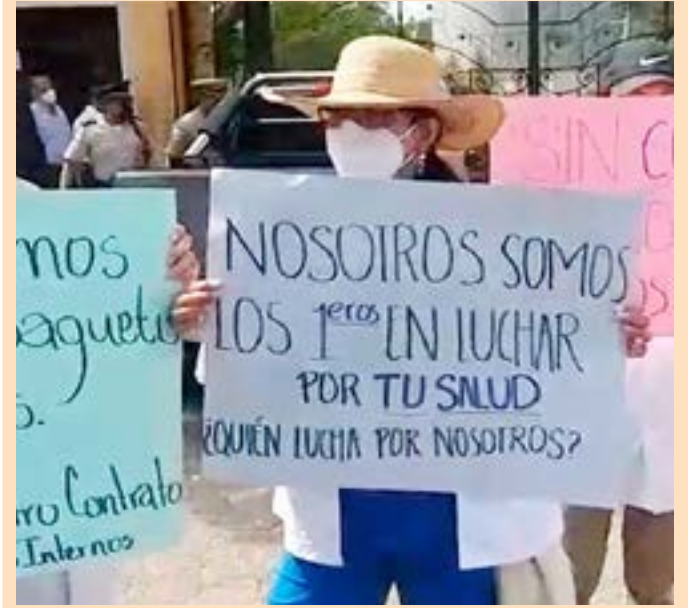 nos
s.
Contrato
Internos
NOSOTROS SOMOS
LOS 1eros EN LUCHAR
POR TU SALUD
¿QUIÉN LUCHA POR NOSOTROS?
SIN